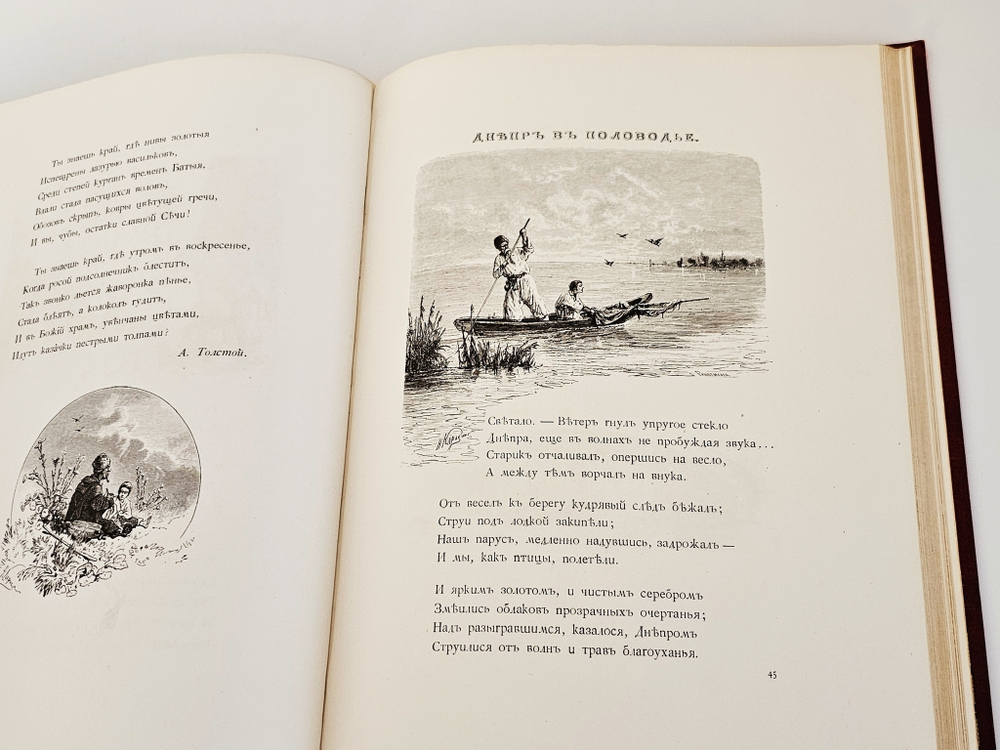 Ты знаешь край, гдѣ нивы золотыя
Испещрены лазурью васильковъ,
Среди степей курганъ временъ Батыя,
Вдали стада пасущихся воловъ,
Обозовъ скрыпъ, ковры цвѣтущей гречи,
И вы, чубы, остатки славной Сѣчи!
Ты знаешь край, гдѣ утромъ въ воскресенье,
Когда росой подсолнечникъ блеститъ,
Такъ звонко льется жаворонка пѣнье,
Стада блѣятъ, а колоколъ гудитъ,
И въ Божій храмъ, увѣнчаны цвѣтами,
Идутъ казачки пестрыми толпами?
А. Толстой.
ДНѢПРЪ ВЪ ПОЛОВОДЬЕ.
Свѣтало. — Вѣтеръ гнулъ упругое стекло
Днѣпра, еще въ волнахъ не пробуждая звука...
Старикъ отчаливалъ, опершись на весло,
А между тѣмъ ворчалъ на внука.
Отъ веселъ къ берегу кудрявый слѣдъ бѣжалъ;
Струи подъ лодкой закипѣли;
Нашъ парусъ, медленно надувшись, задрожалъ —
И мы, какъ птицы, полетѣли.
И яркимъ золотомъ, и чистымъ серебромъ
Змѣились облаковъ прозрачныхъ очертанья;
Надъ разыгравшимся, казалося, Днѣпромъ
Струилися отъ волнъ и травъ благоуханья.
45